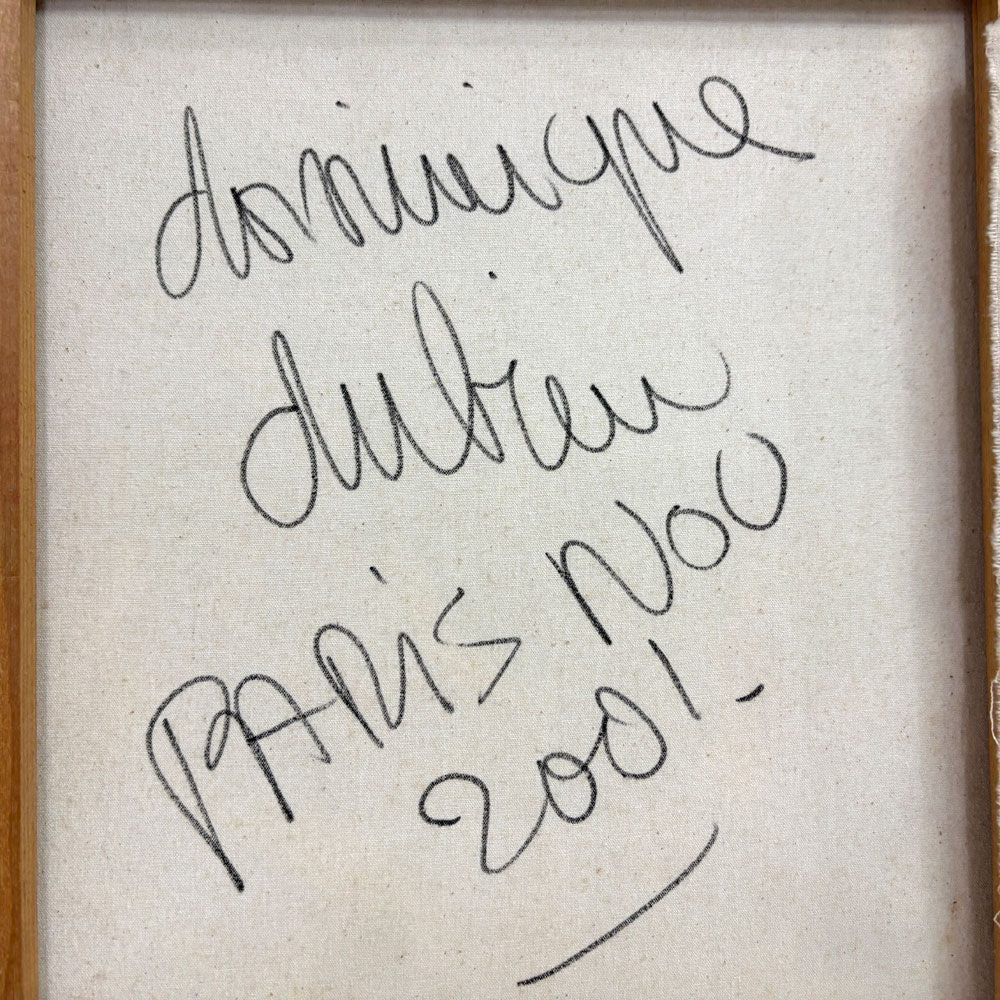 dominique
dubien
PARiS NOV
2001.